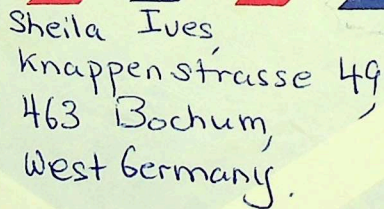 Sheila Ives,
Knappenstrasse 49,
463 Bochum,
West Germany.